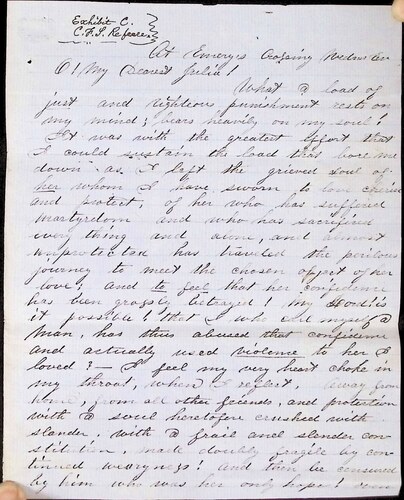 Exhibit C.
C.F.S. Referee.
At Emerys Crossing Wednesdee
O! My Dearest Julia!
What a load of
just and righteous punishment rests on
my mind; bears heavily on my soul!
It was with the greatest effort that
I could sustain the load that bore me
down as I left the grieved soul of
her whom I have sworn to love cherish
and protect, of her who has suffered
martyrdom and who has sacrificed
every thing and alone, and almost
unprotected has traveled the perilous
journey to meet the chosen object of her
love, and to feel that her confidence
has been grossly betrayed! my God! is
it possible! that I who call myself a
man, has thus abused that confidence
and actually used violence to her I
loved?— I feel my very heart choke in
my throat, when I reflect, away from
home, from all other friends, and protection
with a soul heretofore crushed with
slander, with a frail and slender con
stitution, made doubly fragile by con
tinued wearyness! and then be censured
by him who was her only hope!